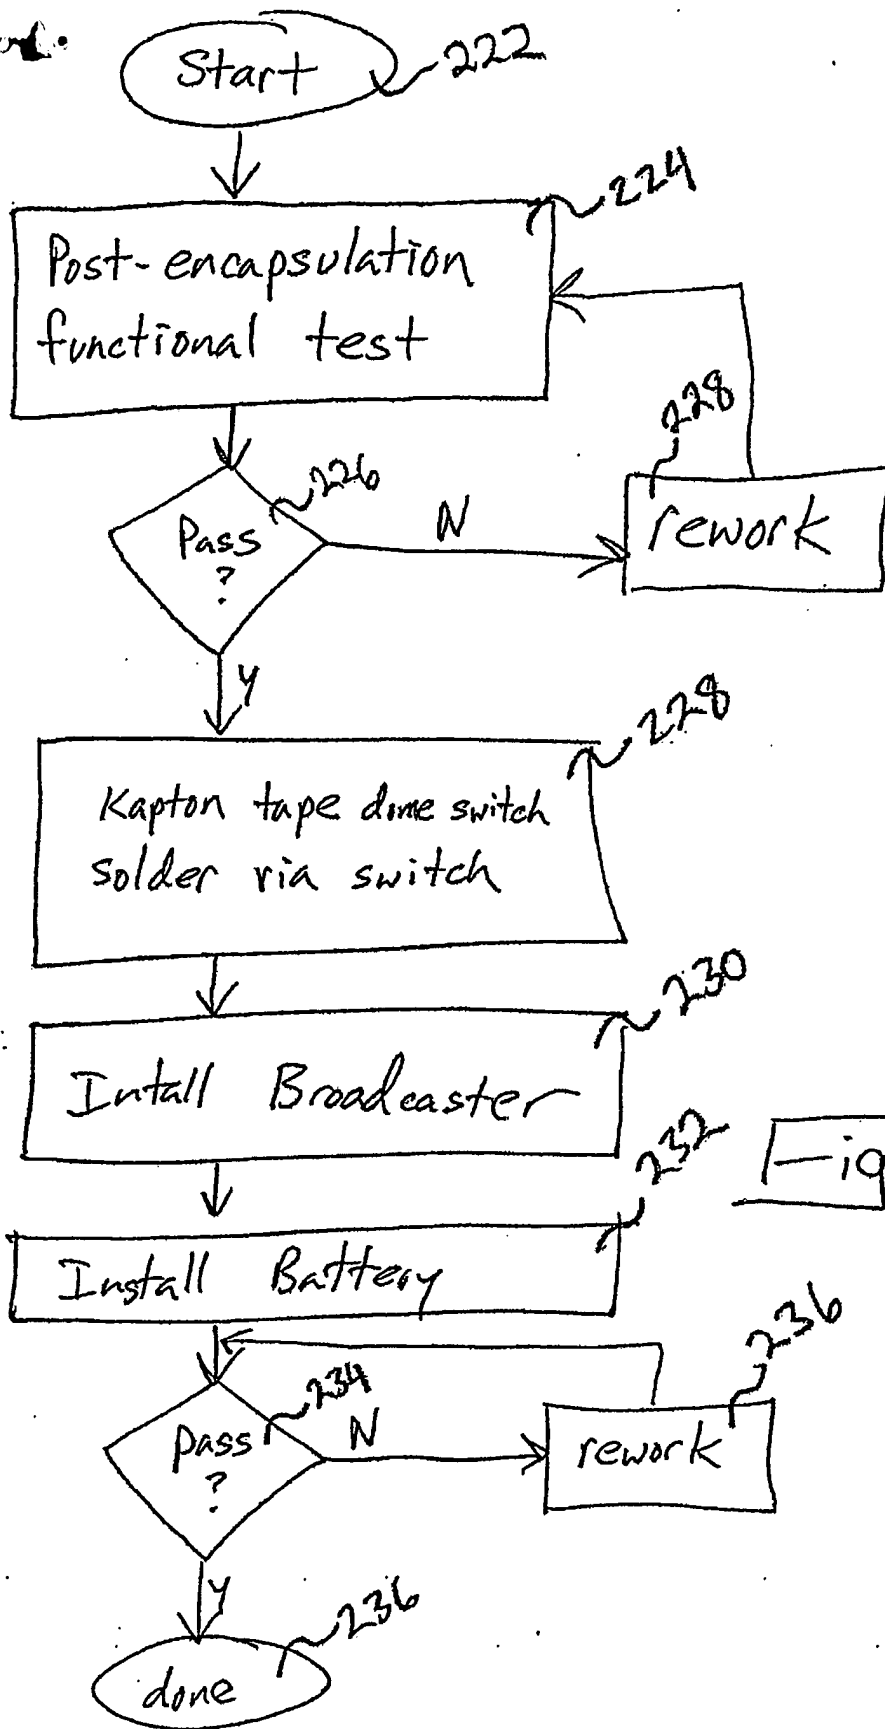 Start
222
224
Post-encapsulation
functional test
228
226
Pass
?
N
rework
Y
228
Kapton tape dome switch
solder via switch
230
Intall Broadcaster
232
Fig
Install Battery
236
234
Pass
?
N
rework
Y
236
done